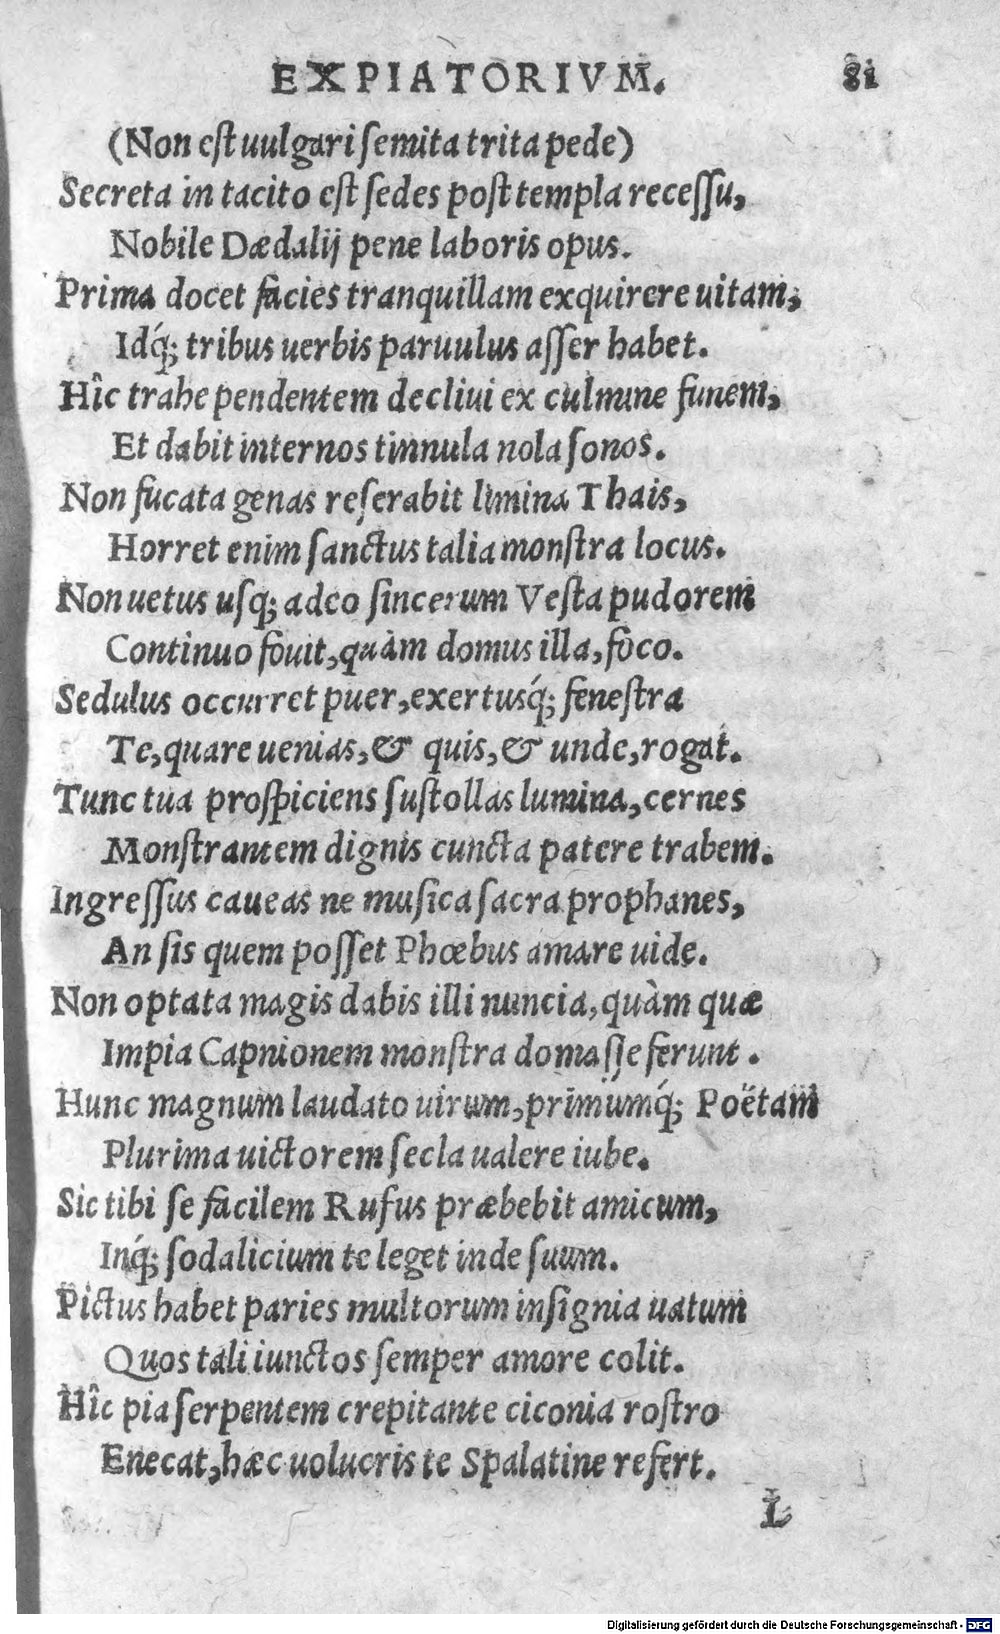 EXPIATORIVM. 81
(Non est uulgari semita trita pede)
Secreta in tacito est sedes post templa recessu,
Nobile Dædalij pene laboris opus.
Prima docet facies tranquillam exquirere uitam,
Idq́; tribus uerbis paruulus asser habet.
Hîc trahe pendentem decliui ex culmine funem,
Et dabit internos tinnula nola sonos.
Non fucata genas reserabit limina Thais,
Horret enim sanctus talia monstra locus.
Non uetus usq; adeo sincerum Vesta pudorem
Continuo fouit, quàm domus illa, foco.
Sedulus occurret puer, exertusq́; fenestra
Te, quare uenias, & quis, & unde, rogat.
Tunc tua prospiciens sustollas lumina, cernes
Monstrantem dignis cuncta patere trabem.
Ingressus caueas ne musica sacra prophanes,
An sis quem posset Phœbus amare uide.
Non optata magis dabis illi nuncia, quàm quæ
Impia Capnionem monstra domasse ferunt.
Hunc magnum laudato uirum, primumq́; Poëtam
Plurima uictorem secla ualere iube.
Sic tibi se facilem Rufus præbebit amicum,
Inq́; sodalicium te leget inde suum.
Pictus habet paries multorum insignia uatum
Quos tali iunctos semper amore colit.
Hîc pia serpentem crepitante ciconia rostro
Enecat, hæc uolucris te Spalatine refert.
L
Digitalisierung gefördert durch die Deutsche Forschungsgemeinschaft - DFG